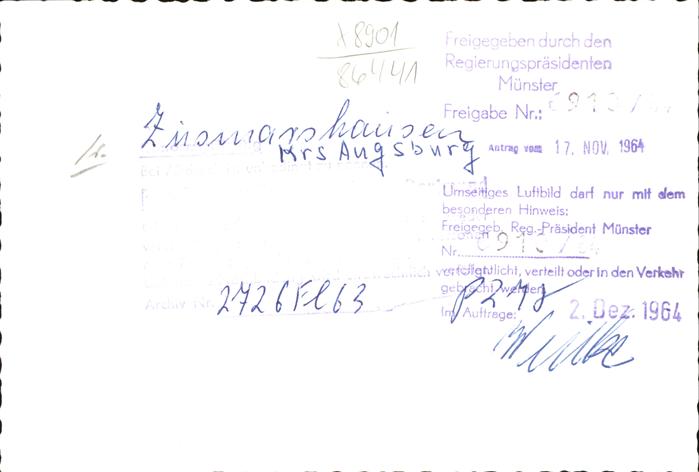 λ 8901
86441
Freigegeben durch den
Regierungspräsidenten
Münster
Freigabe Nr.: 6913/64
Antrag vom 17. NOV. 1964
Zusmarshausen
Krs Augsburg
Umseitiges Luftbild darf nur mit dem
besonderen Hinweis:
Freigegeb. Reg.-Präsident Münster
Nr. 6913/64
veröffentlicht, verteilt oder in den Verkehr
gebracht werden
Archiv Nr. 2726Fl63
P278
Im Auftrage: 2. Dez. 1964